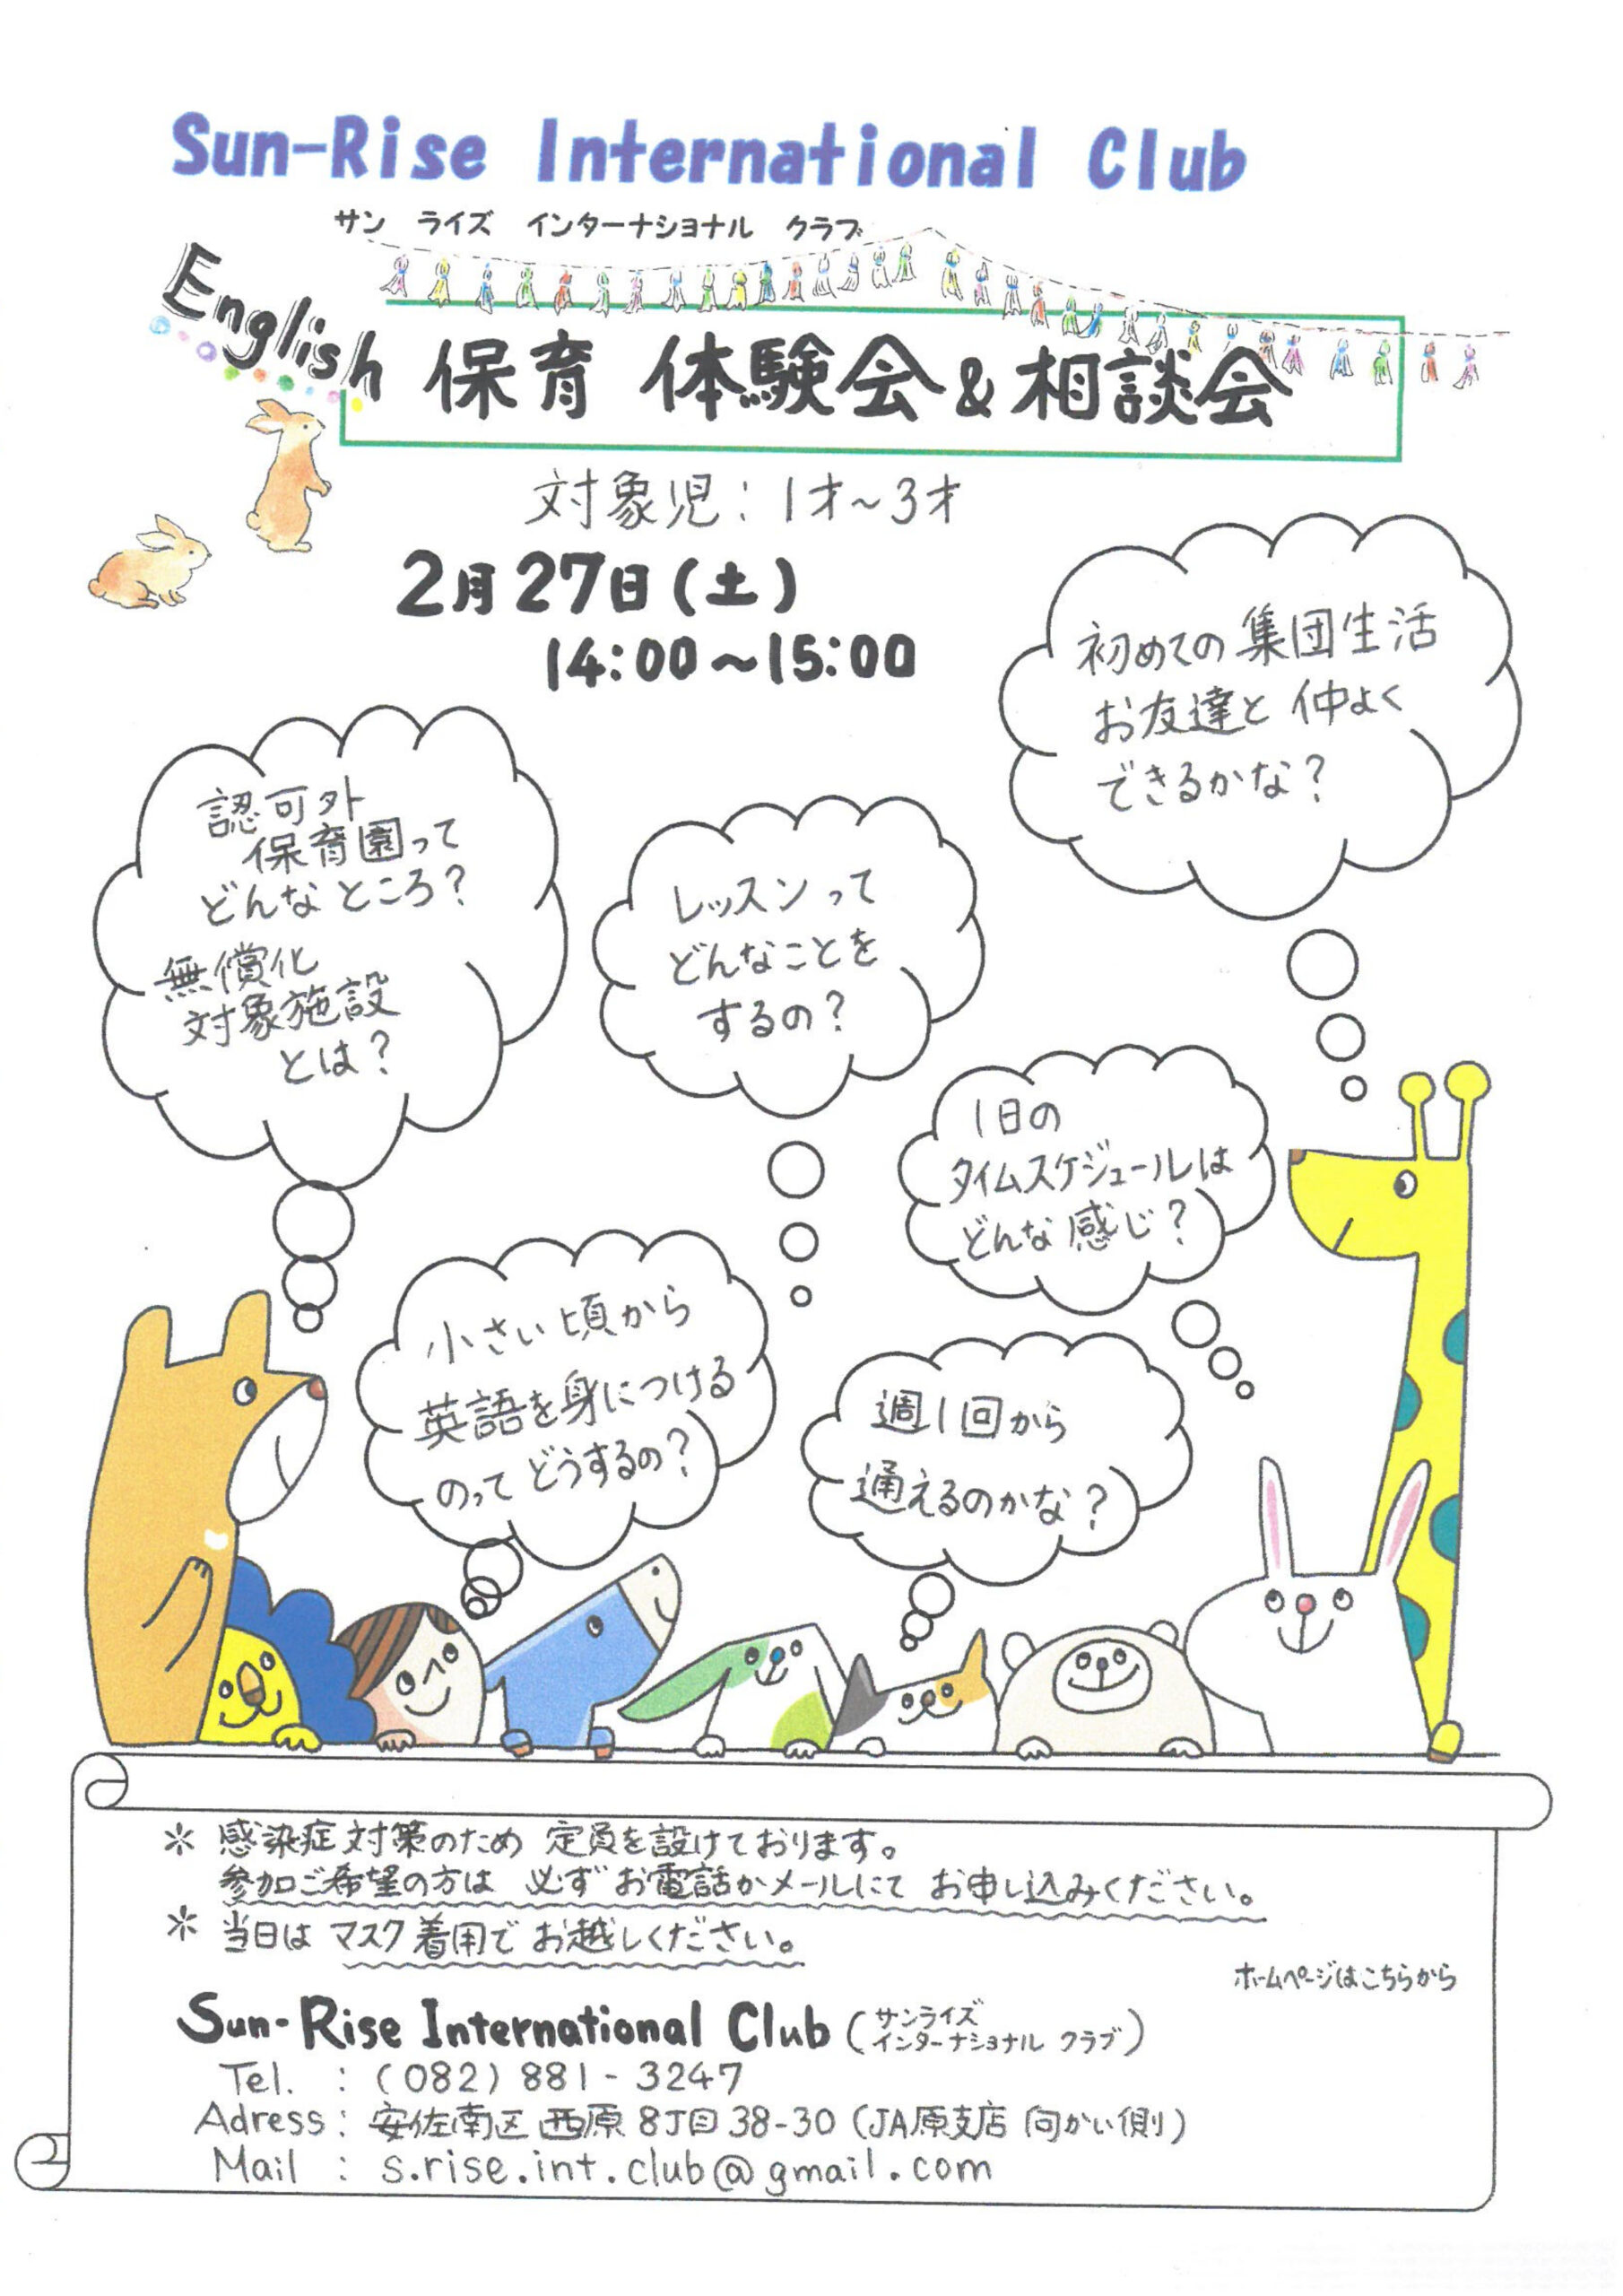 Sun-Rise International Club
サン ライズ インターナショナル クラブ
English 保育 体験会&相談会
対象児：1才～3才
2月27日(土)
14:00～15:00
初めての集団生活
お友達と仲よく
できるかな？
認可外
保育園って
どんなところ？
無償化
対象施設
とは？
レッスンって
どんなことを
するの？
1日の
タイムスケジュールは
どんな感じ？
小さい頃から
英語を身につける
のってどうするの？
週1回から
通えるのかな？
＊ 感染症対策のため 定員を設けております。
参加ご希望の方は 必ずお電話かメールにて お申し込みください。
＊ 当日は マスク着用で お越しください。
ホームページはこちらから
Sun-Rise International Club (サンライズ インターナショナル クラブ)
Tel. : (082) 881-3247
Adress : 安佐南区西原8丁目38-30 (JA原支店 向かい側)
Mail : s.rise.int.club@gmail.com